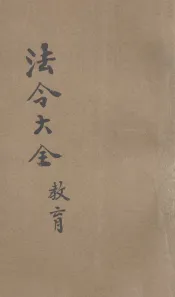 法令大全
教育